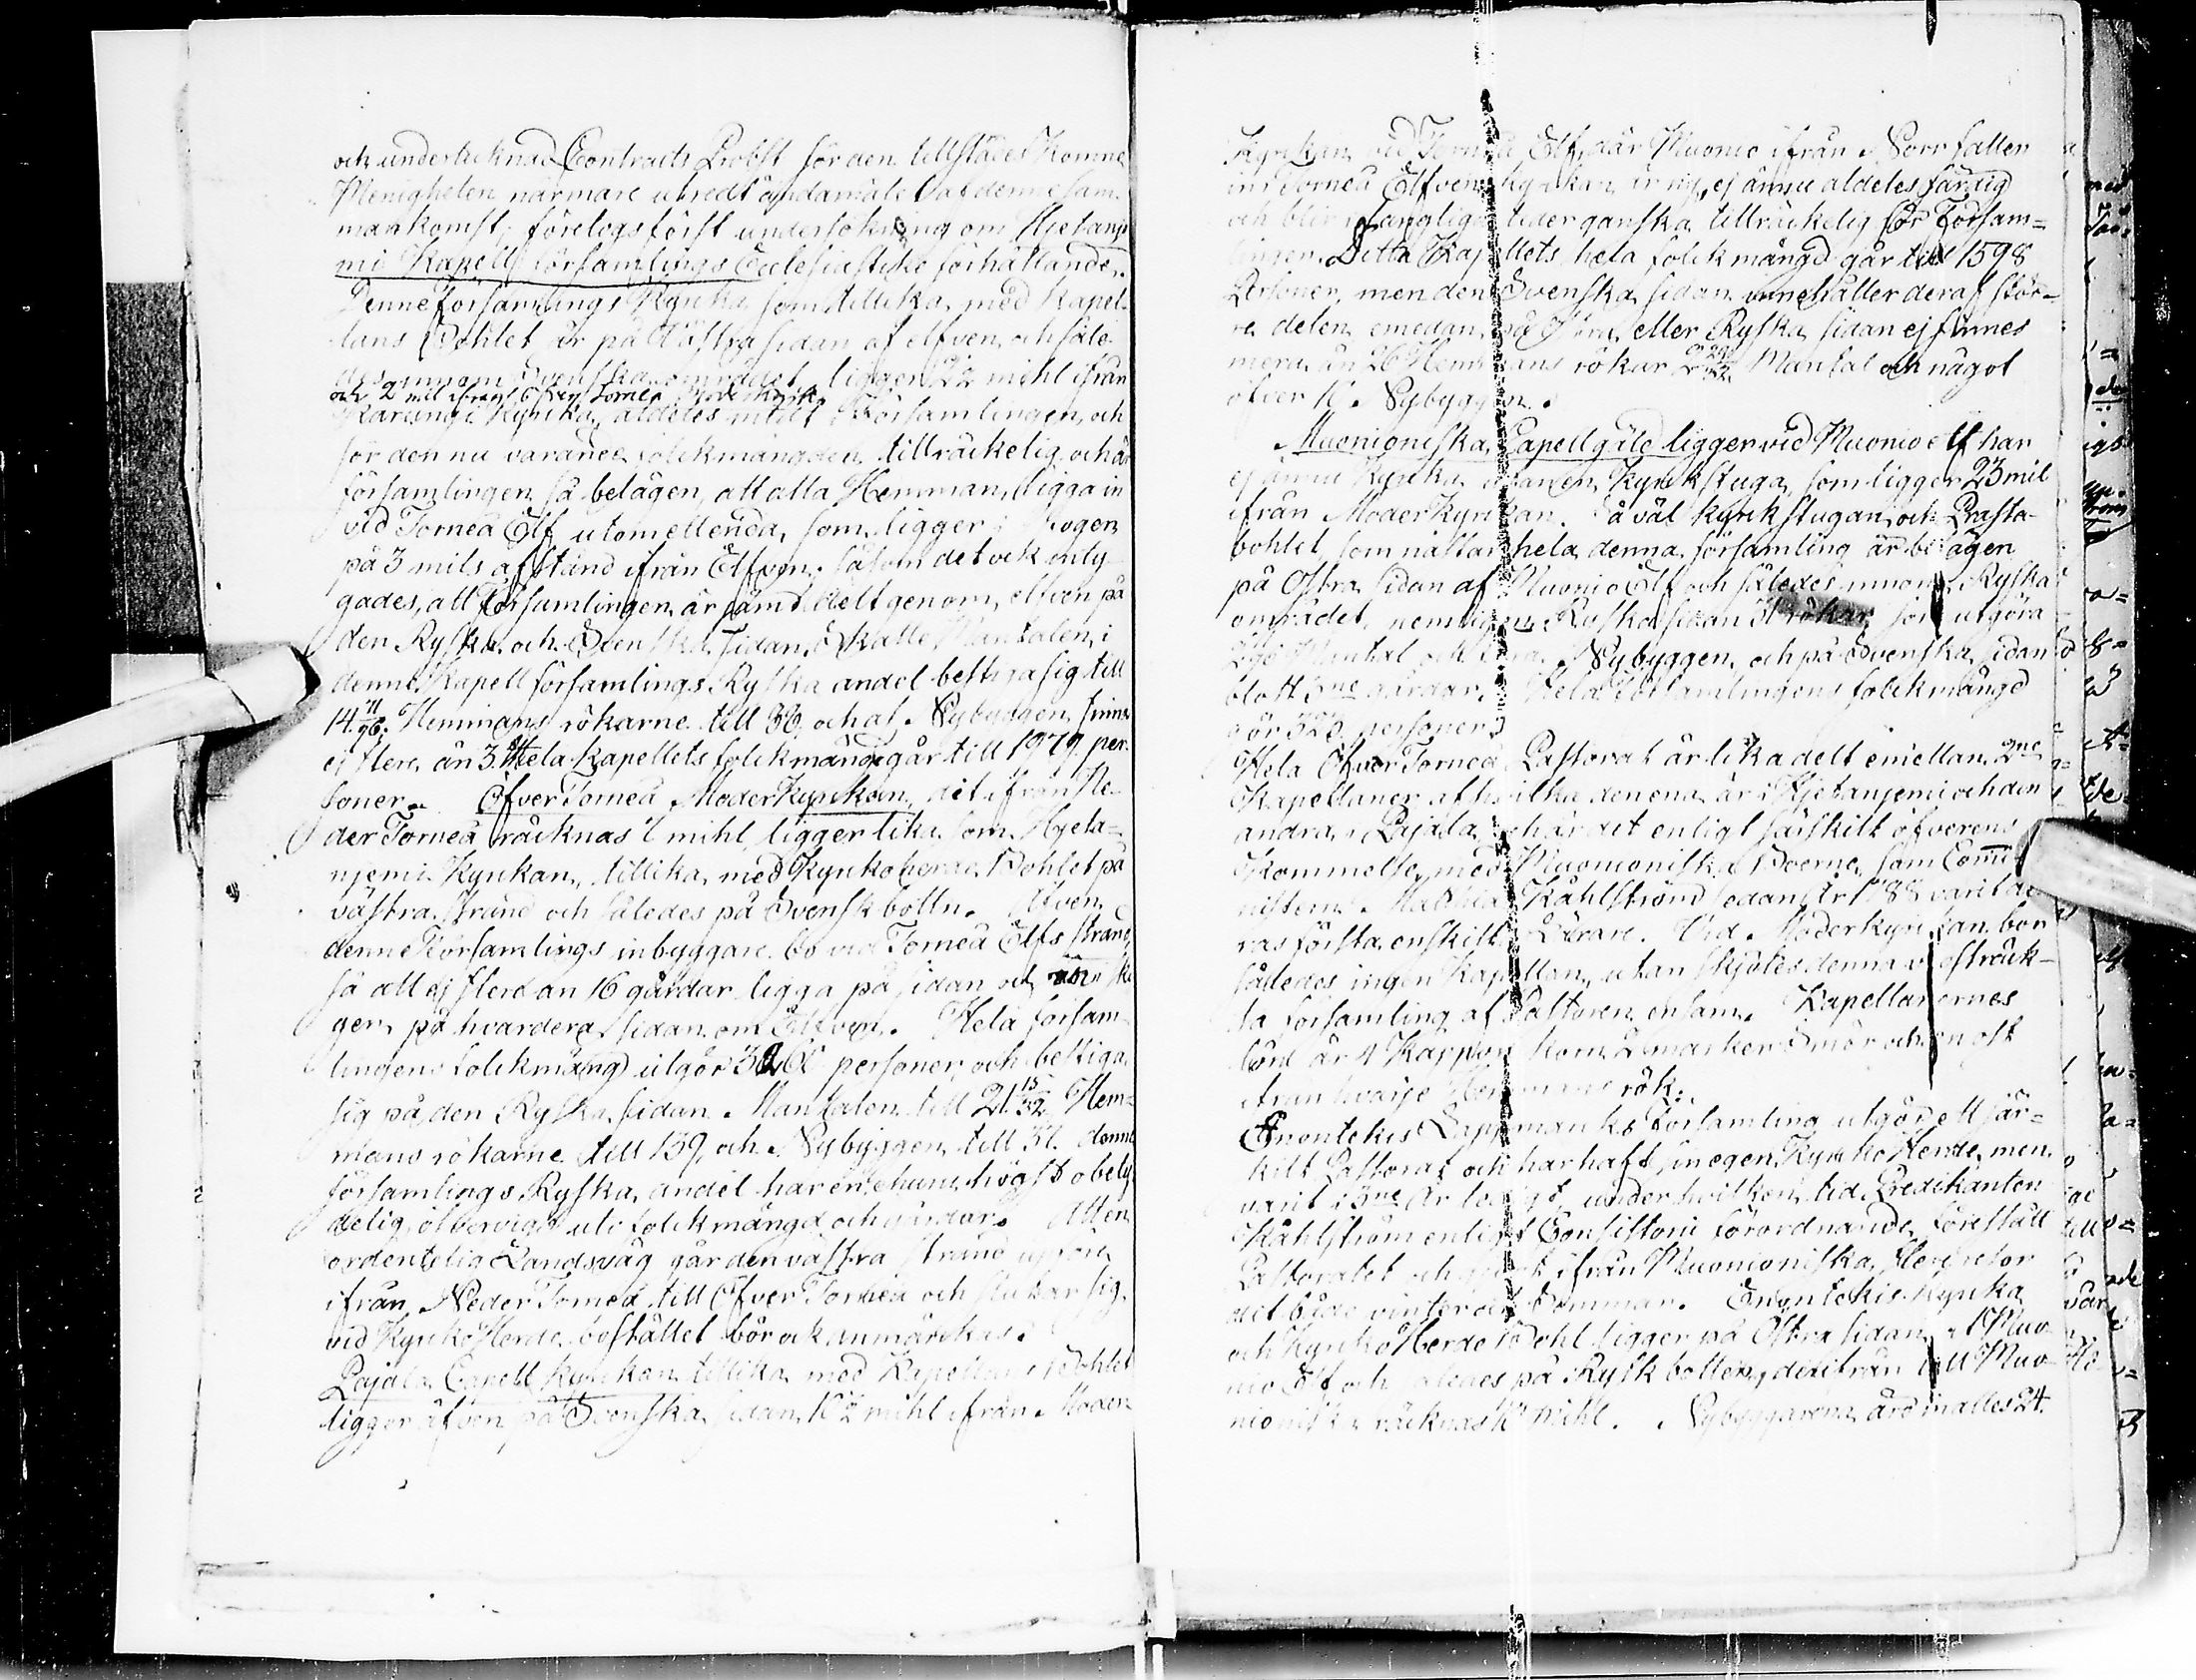 och undertecknad Contracts Probst för den tillstädes komne
Menigheten närmare utredt ändamålet af denne sam-
mankomst, företogs först undersökning om Hjetanje
mi Kapells församlings Ecclesiastike förhållande.
Denne församlings Kyrka som tillika med Kapel-
lans Bohlet är på Västra sidan af elfven och såle-
des innom Svenska området ligger 2½ mihl ifrån
och 2 mil ifrån Öfver Torneå Moderkyrka
Karungi Kyrka, aldeles midt i Församlingen, och
för den nu varande folckmängden tillräckelig och är
församlingen så belägen, att alla Hemman ligga in
vid Torneå Elf utom ett enda, som ligger i skogen
på 3 mils afstånd ifrån Elfven. såsom det ock inty-
gades, att Församlingen är jämt delt genom elfven på
den Ryska och Svenska sidan, Skatte Mantalen i
denne Kapell församlings Ryska andel bestiga sig till
14 11/96. Hemmans rökarne till 86, och af Nybyggen finnes
ej flere än 3. Hela Kapellets folckmängd går till 1979 per-
soner. Öfver Torneå Moder Kyrkan, dit ifrån Ne-
der Torneå räcknas 6 mihl, ligger lika som Hjeta-
njemi Kyrkan, tillika med Kyrkoherde Bohlet på
västra strand och således på Svensk botten. Äfven
denne Församlings inbyggare bo vid Torneå Elfs strand,
så att ej flere än 16 gårdar ligga på sidan och
gen på hvardera sidan om Elfven. Hela försam-
lingens folckmängd utgör personer, och bestiga
sig på den Ryska sidan Mantalen till 21 15/32 Hem-
mans rökarne till 139, och Nybyggen till 31. denne
församlings Ryska andel har en ehuru högst obety-
delig öfvervigt uti folckmängd och gårdar. Atten
ordentelig Landsväg går den västra strand uppföre
ifrån Neder Torneå till Öfver Torneå och slutar sig
vid KyrkoHerde bostället bör ock anmärckas.
Pajala Capell kyrkan tillika med Kapellans Bohlet
ligger äfven på Svenska sidan, 10½ mihl ifrån Moder
Kyrkan vid Torneå Elf, där Muonio ifrån Norr faller
in i Torneå Elfven, kyrkan är ny, ej ännu aldeles färdig
och blir i långliga tider ganska tillräckelig för Försam-
lingen. Detta Kapellets hela folckmängd går till 1598
Personer, men den Svenska sidan innehåller deraf stör-
re delen emedan på Östra eller Ryska sidan ej finnes
mera än 26 Hemmans rökar Mantal och något
öfver 10 Nybyggen.
Muonioniska Capellgäld ligger vid Muonio elf har
ej ännu Kyrka, utan en Kyrkstuga, som ligger 23 mil
ifrån Moder Kyrkan. Så väl kyrkstugan och Prästa-
bohlet som nästan hela denna församling är belägen
på Östra sidan af Muonio Elf och således innom Ryska
området, nemligen Ryska sidan 31 rökar som utgöra
Mantal och Nybyggen, och på Svenska sidan
blott 5ne gårdar. Hela Församlingens folckmängd
gör 328 personer.
Hela Öfver Torneå Pastorat är lika delt emellan 2ne
Kapellaner af hvilka den ena är i Hjetanjemi och den
andra i Pajala, och har det enligt särskilt öfverens
kommelse med Muonioniska Boerne, som Commi-
nistern Mathias Kåhlström sedan År 1788 varit de-
ras första enskilt Lärare. Vid Moderkyrkan bor
således ingen Kapellan, utan skjötes denna vidsträck-
ta församling af Pastoren ensam. Kapellanernes
lön är 4 Kappar korn, 2 marker Smör och en ost
ifrån hvarje Hemmans rök.
Enontekis Lappmarks Församling utgör ett sär-
kilt Pastorat och har haft sin egen Kyrko Herde, men
varit i 3ne år ledigt, under hvilken tid Predikanten
Kåhlström enligt Consistorii förordnande förestått
Pastoratet och gjort ifrån Muonioniska flere resor
dit både vinter och Sommar. Enontekis Kyrka
och Kyrko Herde Bohl ligger på Östra sidan af Muo-
nio Elf och således på Rysk botten, derifrån till Muo-
nioniska räcknas 10 mihl. Nybyggarena äro inalles 24.